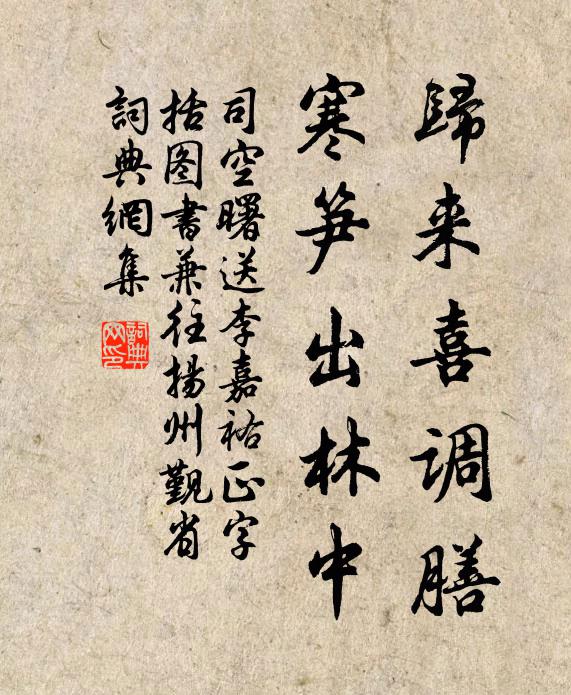 歸来喜调膳
寒笋出林中
司空曙送李嘉祐正字
括图書兼往揚州覲省
詞典網集
詞典
网印